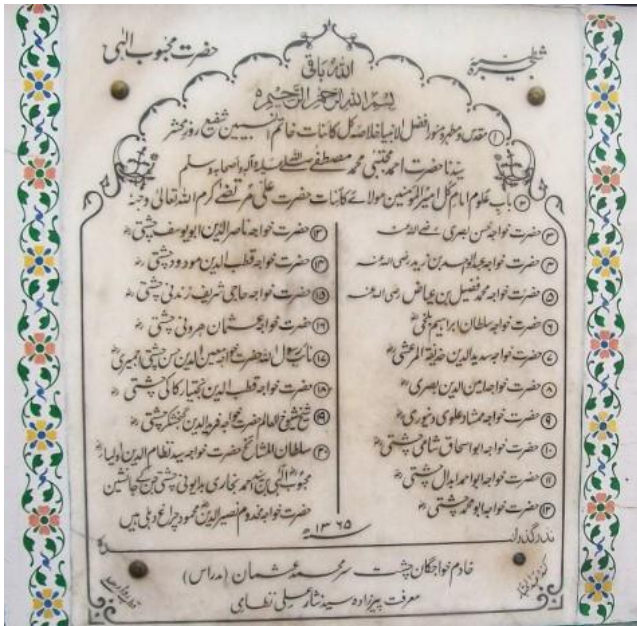 شجرۂ طیبہ
حضرت محبوب الٰہی
اللہ باقی
بسم اللہ الرحمن الرحیم
① مقدس و مطہر و منور افضل الانبیا خلاصہ کل کائنات خاتم النبیین شفیع روز محشر
سیدنا حضرت احمد مجتبیٰ محمد مصطفےٰ صلی اللہ علیہ وآلہ واصحابہ وسلم
② باب علوم امام کل امیر المومنین مولائے کائنات حضرت علی مرتضےٰ کرم اللہ تعالیٰ وجہہ
③ حضرت خواجہ حسن بصری رضی اللہ عنہ
④ حضرت خواجہ عبدالواحد بن زید رضی اللہ عنہ
⑤ حضرت خواجہ محمد فضیل بن عیاض رضی اللہ عنہ
⑥ حضرت خواجہ سلطان ابراہیم بلخیؒ
⑦ حضرت خواجہ سدید الدین حذیفۃ المرعشیؒ
⑧ حضرت خواجہ امین الدین بصریؒ
⑨ حضرت خواجہ ممشاد علوی دینوریؒ
⑩ حضرت خواجہ ابو اسحاق شامی چشتیؒ
⑪ حضرت خواجہ ابو احمد ابدال چشتیؒ
⑫ حضرت خواجہ ابو محمد چشتیؒ
⑬ حضرت خواجہ ناصر الدین ابو یوسف چشتیؒ
⑭ حضرت خواجہ قطب الدین مودود چشتیؒ
⑮ حضرت خواجہ حاجی شریف زندنی چشتیؒ
⑯ حضرت خواجہ عثمان ہرونی چشتیؒ
⑰ نائب رسول اللہ حضرت خواجہ معین الدین حسن چشتی اجمیریؒ
⑱ حضرت خواجہ قطب الدین بختیار کاکی چشتیؒ
⑲ شیخ شیوخ العالم حضرت خواجہ فرید الدین گنجشکر چشتیؒ
⑳ سلطان المشائخ حضرت خواجہ سید نظام الدین اولیاؒ
محبوب الٰہی بن سید احمد بخاری بدایونی چشتی جن کے جانشین
حضرت خواجہ مخدوم نصیر الدین محمود چراغ دہلی ہیں
۱۳۶۵ھ
نذر گذران
خادم خواجگان چشت سر محمد عثمان (مدراس)
معرفت پیرزادہ سید نثار علی نظامی